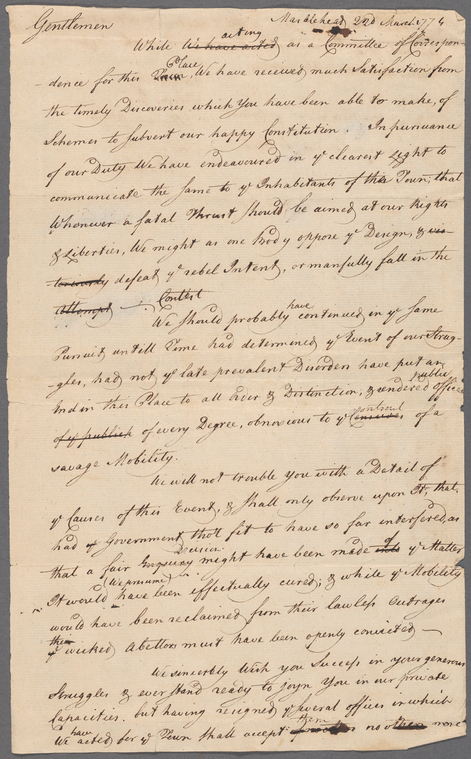 Marblehead 22d March 1774
Gentlemen
acting
While We have acted as a Committee of Correspon-
Place
-dence for this Town, We have received much Satisfaction from
the timely Discoveries which You have been able to make, of
Schemes to subvert our happy Constitution. In pursuance
of our Duty We have endeavoured in ye clearest Light to
communicate the same to ye Inhabitants of this Town; that
Whenever a fatal Thrust should be aimed at our Rights
& Liberties, We might as one Body oppose ye Design, &
defeat ye rebel Intent, or manfully fall in the
attempt — Contest
have
We should probably continued in ye same
Pursuit, untill Time had determined ye Event of our Strug-
-gles, had not ye late prevalent Disorders have put an
Public
End in this Place to all Order & Distinction, & rendered Offices
control
of ye publick of every Degree, obnoxious to ye of a
savage Mobility.
We will not trouble You with a Detail of
ye Causes of this Event, & shall only observe upon It, that
had Government thot fit to have so far interfered, as
that a fair Enquiry might have been made ye Matter
(We presume)
It would have been effectually cured; & while ye Mobility
would have been reclaimed from their lawless Outrages
their
ye wicked Abettors must have been openly convicted —
We sincerely Wish you Success in your generous
Struggles & ever stand ready to joyn You in our private
Capacities. but having resigned ye several offices in which
have them
We acted for ye Town shall accept no other more